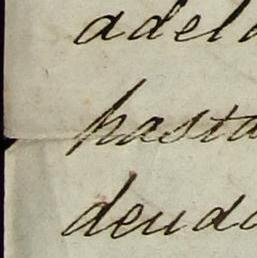 adela
hasta
deuda